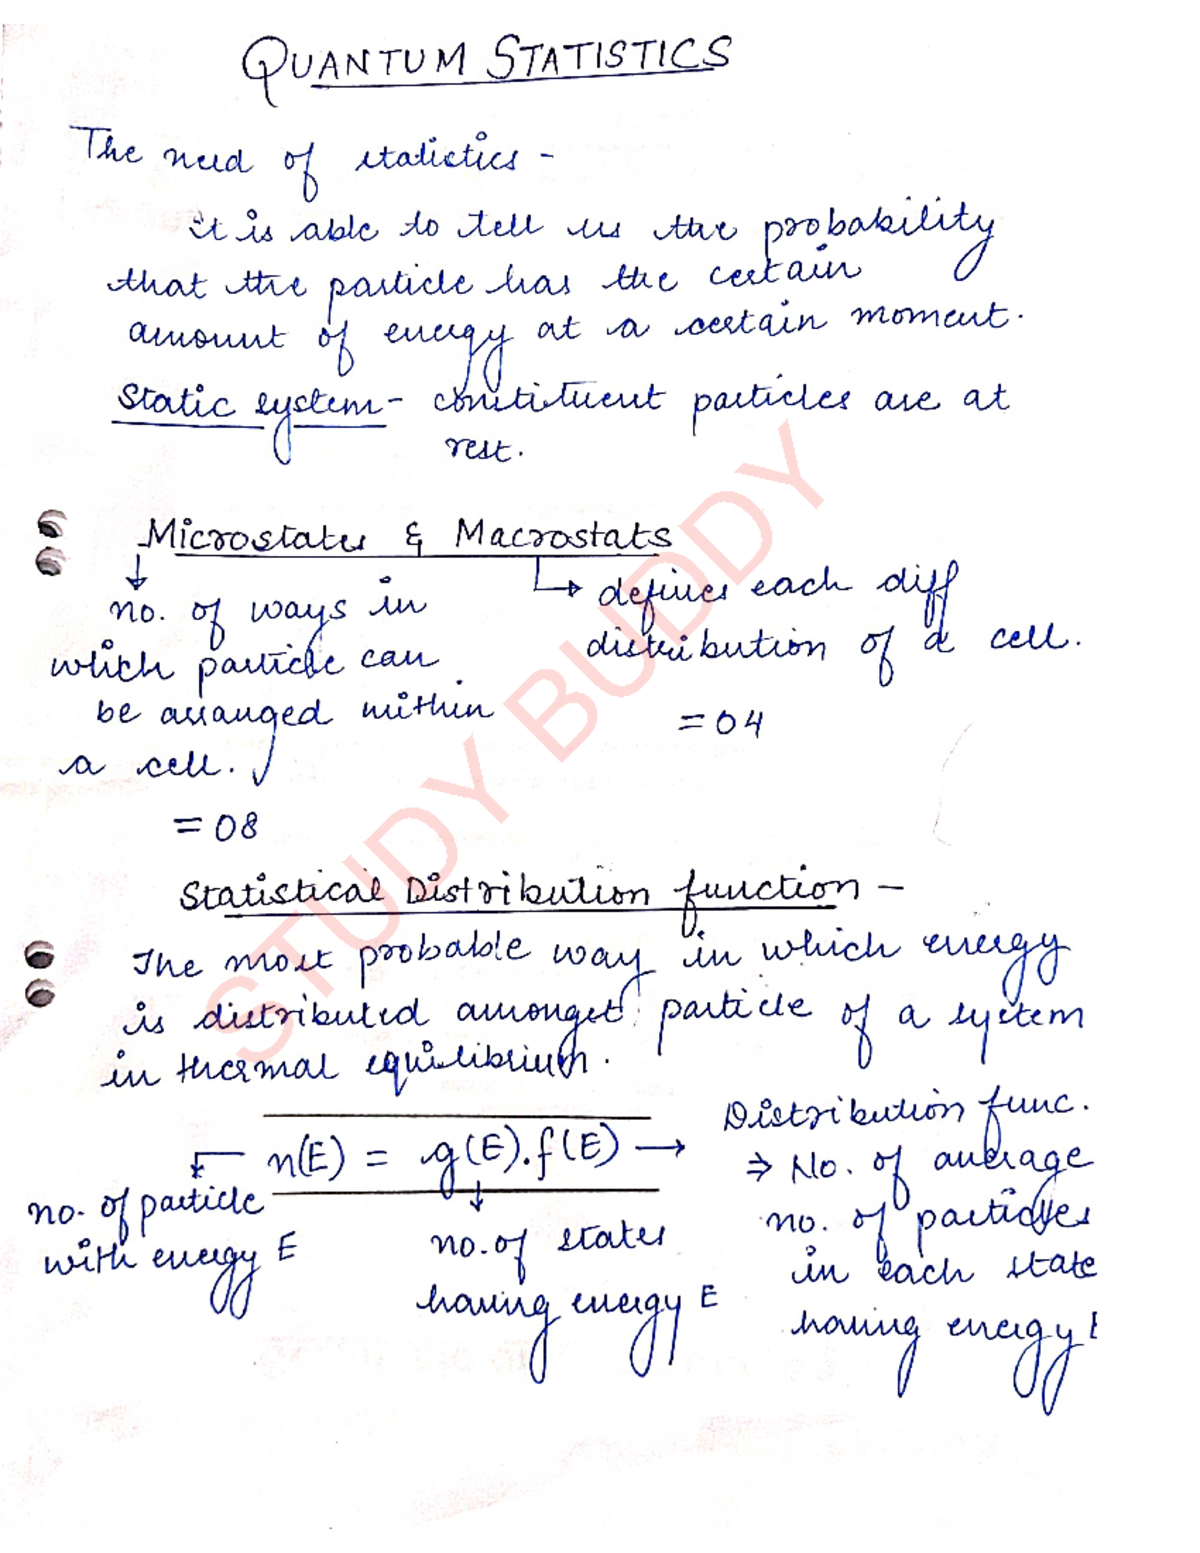 QUANTUM STATISTICS
The need of statistics -
it is able to tell us the probability
that the particle has the certain
amount of energy at a certain moment.
Static system - constituent particles are at
rest.
Microstates & Macrostats
no. of ways in
which particle can
be arranged within
a cell.
= 08
defines each diff
distribution of a cell.
= 04
Statistical Distribution function -
The most probable way in which energy
is distributed amongst particle of a system
in thermal equilibrium.
n(E) = g(E).f(E) →
no. of particle
with energy E
no. of states
having energy E
Distribution func.
⇒ No. of average
no. of particles
in each state
having energy E
STUDY BUDDY